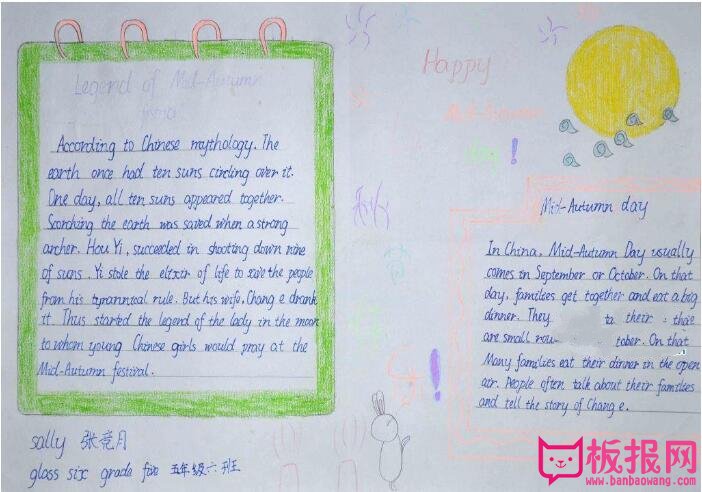 Legend of Mid-Autumn
According to Chinese mythology. The
earth once had ten suns circling over it.
One day, all ten suns appeared together.
Scorching the earth was saved when a strong
archer. Hou Yi, succeeded in shooting down nine
of suns. Yi stole the elixir of life to save the people
from his tyrannical rule. But his wife, Chang e drank
it. Thus started the legend of the lady in the moon
to whom young Chinese girls would pray at the
Mid-Autumn festival.
sally 张亮月
glass six grade five 五年级六班
Happy
Mid-Autumn
!
Mid-Autumn day
In China, Mid-Autumn Day usually
comes in September or October. On that
day, families get together and eat a big
dinner. They to their
are small tober. On that
Many families eat their dinner in the open
air. People often talk about their families
and tell the story of Chang e.
!
板报网
www.banbaowang.com